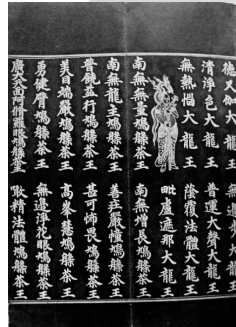 德叉伽大龍王
無邊步大龍王
清淨色大龍王
普運大聲大龍王
無熱惱大龍王
蔭覆法體大龍王
毗盧遮那大龍王
南無無主鳩槃茶王
南無增長鳩槃茶王
南無龍主鳩槃茶王
善莊嚴幢鳩槃茶王
普饒益行鳩槃茶王
甚可怖畏鳩槃茶王
美目端嚴鳩槃茶王
高峯慧鳩槃茶王
勇健臂鳩槃茶王
無邊淨花眼鳩槃茶王
廣大面阿修羅眼鳩槃茶王
精法體鳩槃茶王